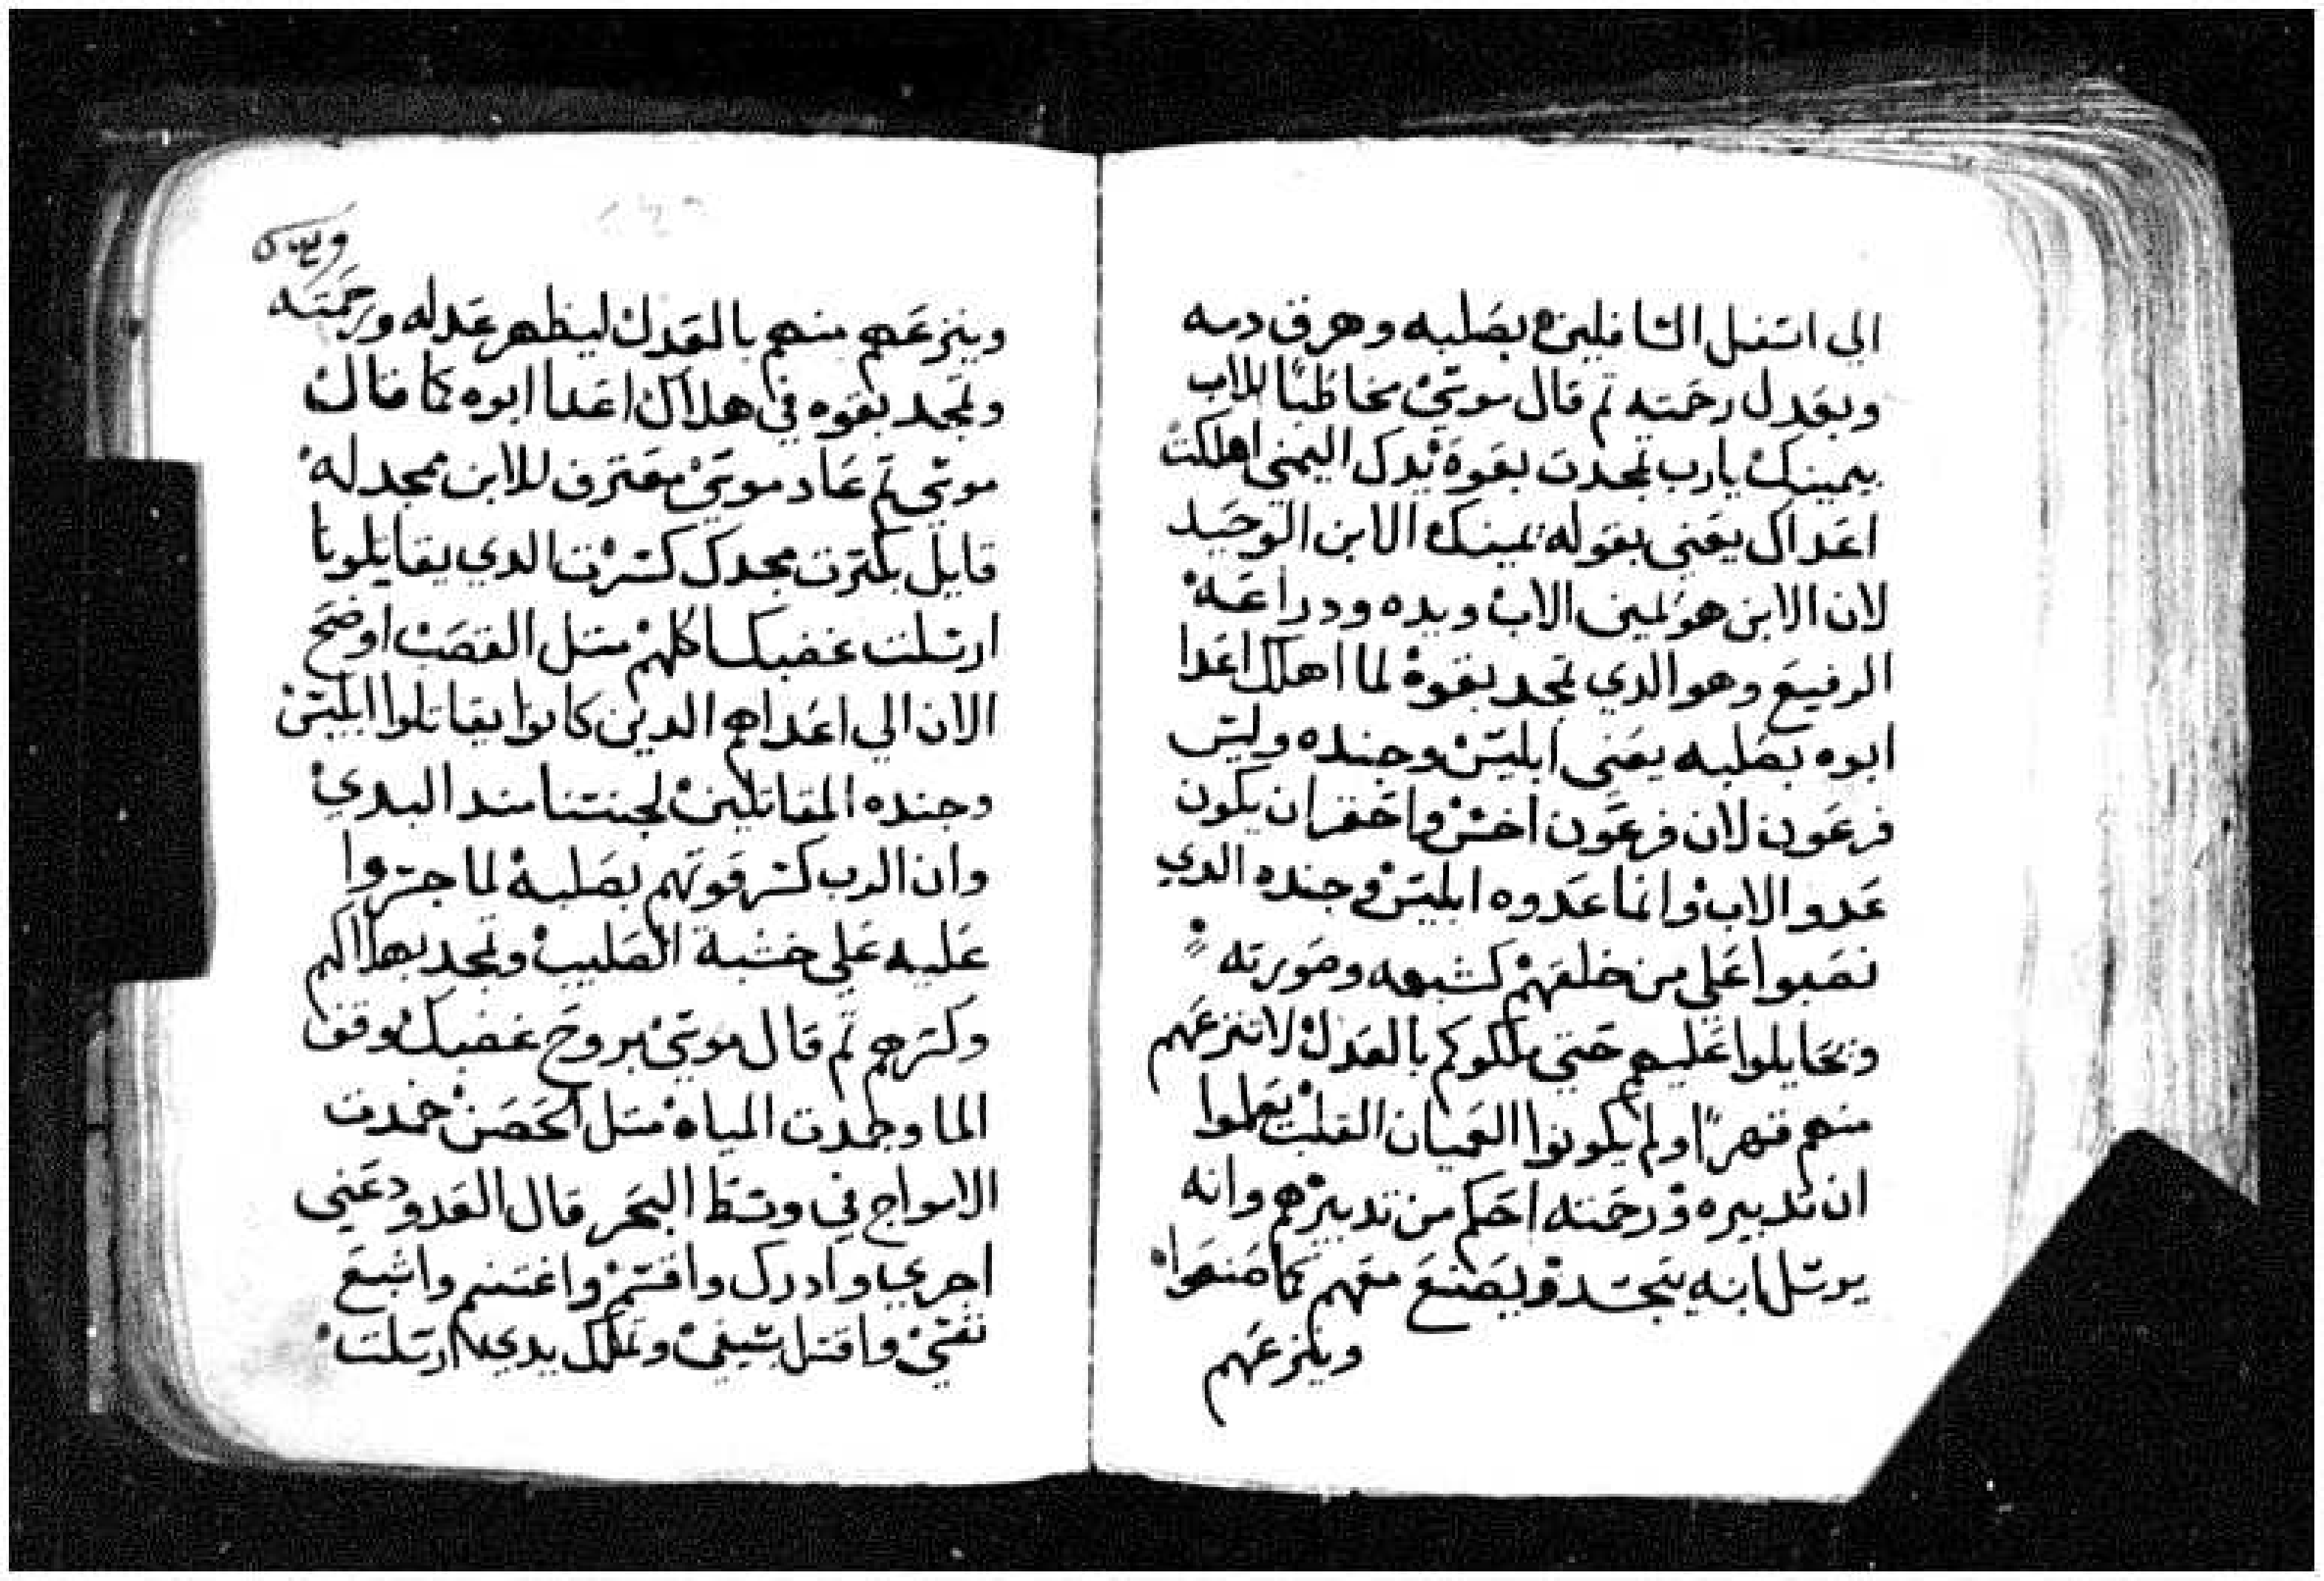 الي اسفل السافلين بصلبه وهرق دمه
وبعدل رحمته تم قال موسي مخاطبًا للاب
بيمينك يارب تمجدت بقوة يدك اليمني اهلكت
اعداك يعني بقوله يمينك الابن الوحيد
لان الابن هو يمين الاب ويده ودراعه
الرفيع وهو الدي تمجد بقوة لما اهلك اعدا
ابوه بصلبه يعني ابليس وجنده وليس
فرعون لان فرعون اخس واحقر ان يكون
عدو الاب وانما عدوه ابليس وجنده الدي
نصبوا علي من خلقهم كشبهه وصورته
وتحايلوا عليهم حتي ملكوكم بالعدل لاتنزعهم
منهم قهرًا ولم يكونوا العميان القلب يعلموا
ان تدبيره ورحمته احكم من تدبيرهم وانه
يرسل ابنه يتجسد ويصنع معهم كما صنعوا
وينزعهم
وينزعهم منهم بالعدل ليظهر عدله ورحمته
وتمجد بقوه في هلاك اعدا ابوه كما قال
موسي تم عاد موسي معترف للابن ممجد له
قايل بكترت مجدك كسرت الدي يقاتلونا
ارسلت غضبك اكلهم متل القصب اوضح
الان الي اعداهم الدين كانوا يقاتلوا ابليس
وجنده المقاتلين لجنسنا مند البدي
وان الرب كسر قوتهم بصلبه لما جسروا
عليه علي خشبة الصليب وتمجد بهلاكهم
وكسرهم تم قال موسي بروح غضبك وقف
الما وجمدت المياه متل الحصن جمدت
الامواج في وسط البحر قال العدو دعني
اجري وادرك واقسم واغتنم واشبع
نفسي واقتل بسيفي وتملك يدي ارسلت